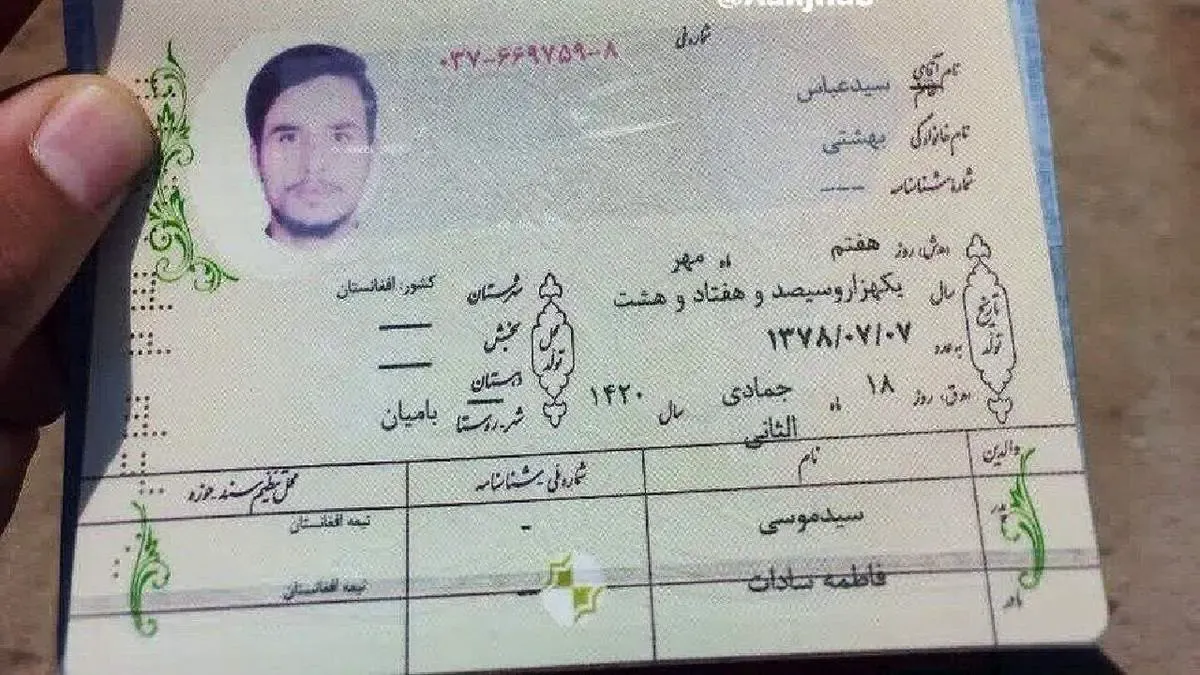 شماره ملی ۰۳۷-۶۶۹۷۵۹-۸
نام آقای سیدعباس
نام خانوادگی بهشتی
شماره شناسنامه ---
روز هفتم ماه مهر
سال یکهزاروسیصد و هفتاد و هشت
به عدد ۱۳۷۸/۰۷/۰۷
روز ۱۸ ماه جمادی الثانی سال ۱۴۲۰
تاریخ تولد
محل تولد
شهرستان کشور: افغانستان
بخش —
دهستان —
شهر-روستا بامیان
والدین نام شماره ملی-شناسنامه محل تنظیم سند-حوزه
پدر سیدموسی - تبعه افغانستان
مادر فاطمه سادات - تبعه افغانستان